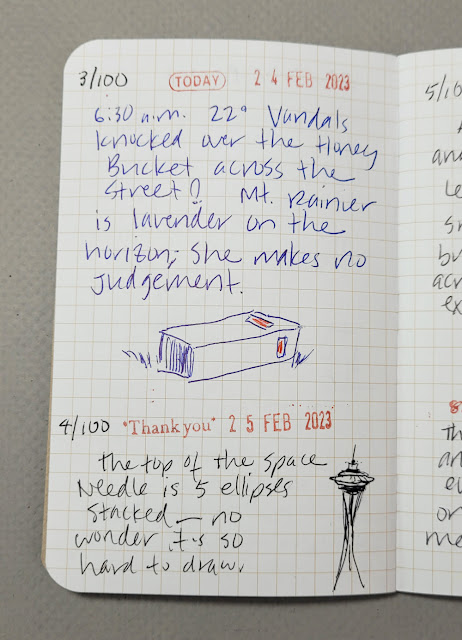 3/100 TODAY 24 FEB 2023
6:30 a.m. 22° Vandals
knocked over the Honey
Bucket across the
street! Mt. Rainier
is lavender on the
horizon; she makes no
judgement.
4/100 "Thank you" 25 FEB 2023
the top of the space
Needle is 5 ellipses
stacked — no
wonder it's so
hard to draw.
5/10
and
Le
Sn
bu
acr
ex
8
th
an
ev
or
me